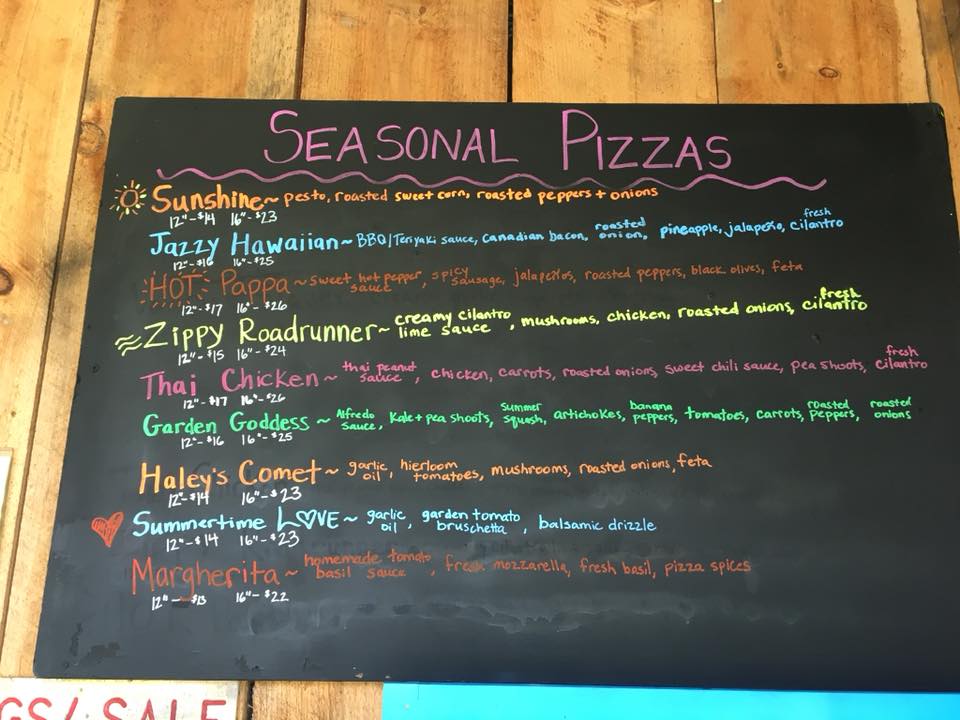 SEASONAL PIZZAS
Sunshine~ pesto, roasted sweet corn, roasted peppers + onions
12"-$14 16"-$23
Jazzy Hawaiian~ BBQ/Teriyaki sauce, canadian bacon, roasted onion, pineapple, jalapeño, fresh cilantro
12"-$16 16"-$25
HOT Pappa~ sweet hot pepper sauce, spicy sausage, jalapeños, roasted peppers, black olives, feta
12"-$17 16"-$26
Zippy Roadrunner~ creamy cilantro lime sauce, mushrooms, chicken, roasted onions, fresh cilantro
12"-$15 16"-$24
Thai Chicken~ thai peanut sauce, chicken, carrots, roasted onions, sweet chili sauce, pea shoots, fresh cilantro
12"-$17 16"-$26
Garden Goddess~ Alfredo sauce, Kale + pea shoots, summer squash, artichokes, banana peppers, tomatoes, carrots, roasted peppers, roasted onions
12"-$16 16"-$25
Haley's Comet~ garlic oil, hierloom tomatoes, mushrooms, roasted onions, feta
12"-$14 16"-$23
Summertime LOVE~ garlic oil, garden tomato bruschetta, balsamic drizzle
12"-$14 16"-$23
Margherita~ homemade tomato basil sauce, fresh mozzarella, fresh basil, pizza spices
12"-$13 16"-$22
GS/SALE